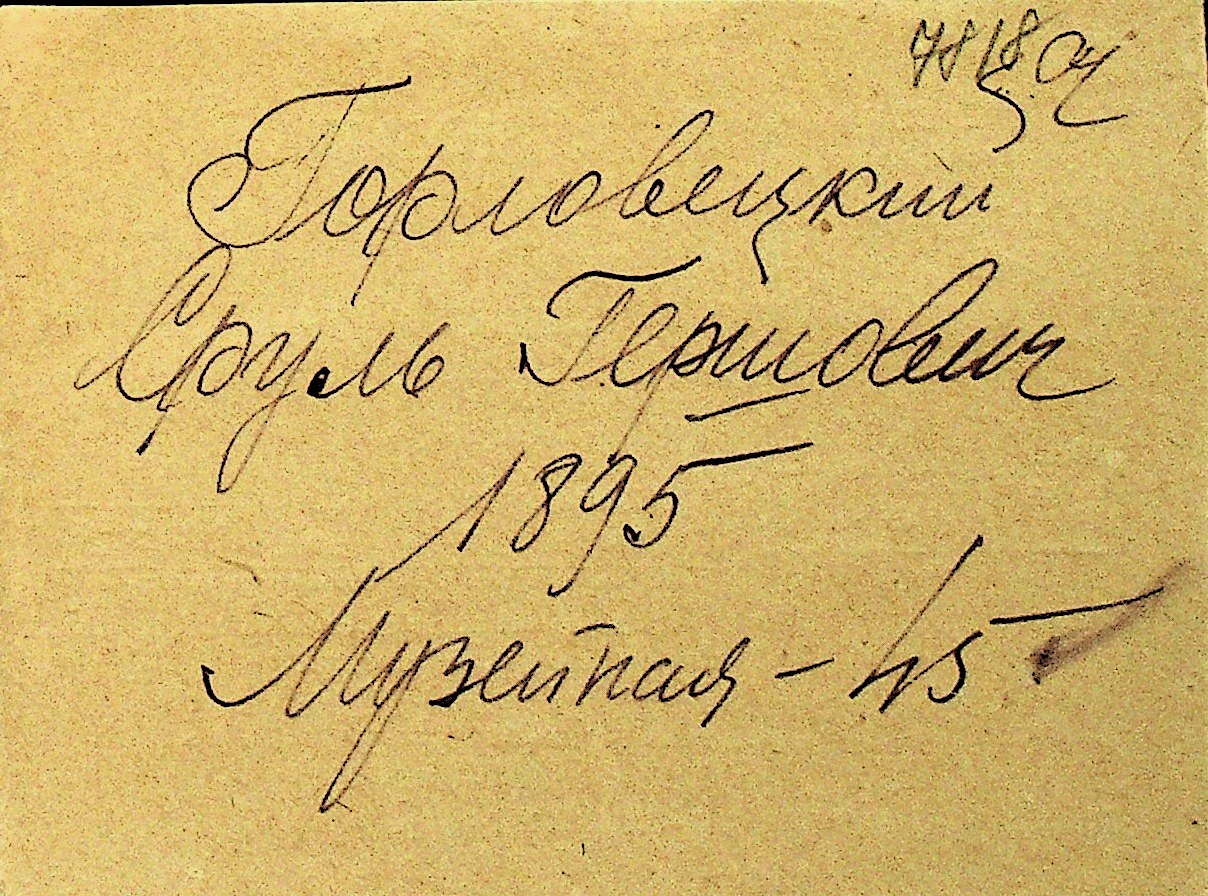 7818
Горловецкий
Сруль Гершович
1895
Музейная - 45